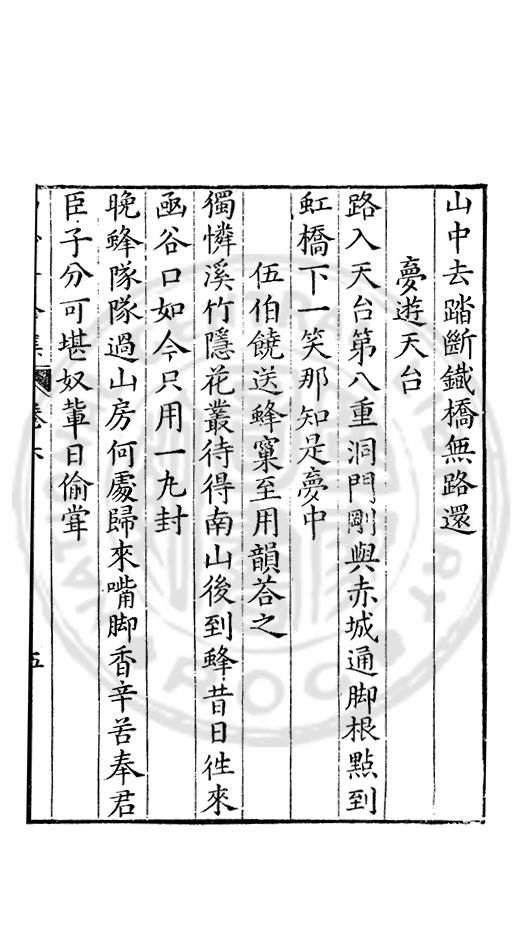 山中去踏斷鐵橋無路還
夢遊天台
路入天台第八重洞門剛與赤城通脚根點到
虹橋下一笑那知是夢中
伍伯饒送蜂窠至用韻荅之
獨憐溪竹隱花叢待得南山後到蜂昔日徃來
凾谷口如今只用一丸封
晚蜂隊隊過山房何處歸來嘴脚香辛苦奉君
臣子分可堪奴軰日偷甞
集 卷六
五